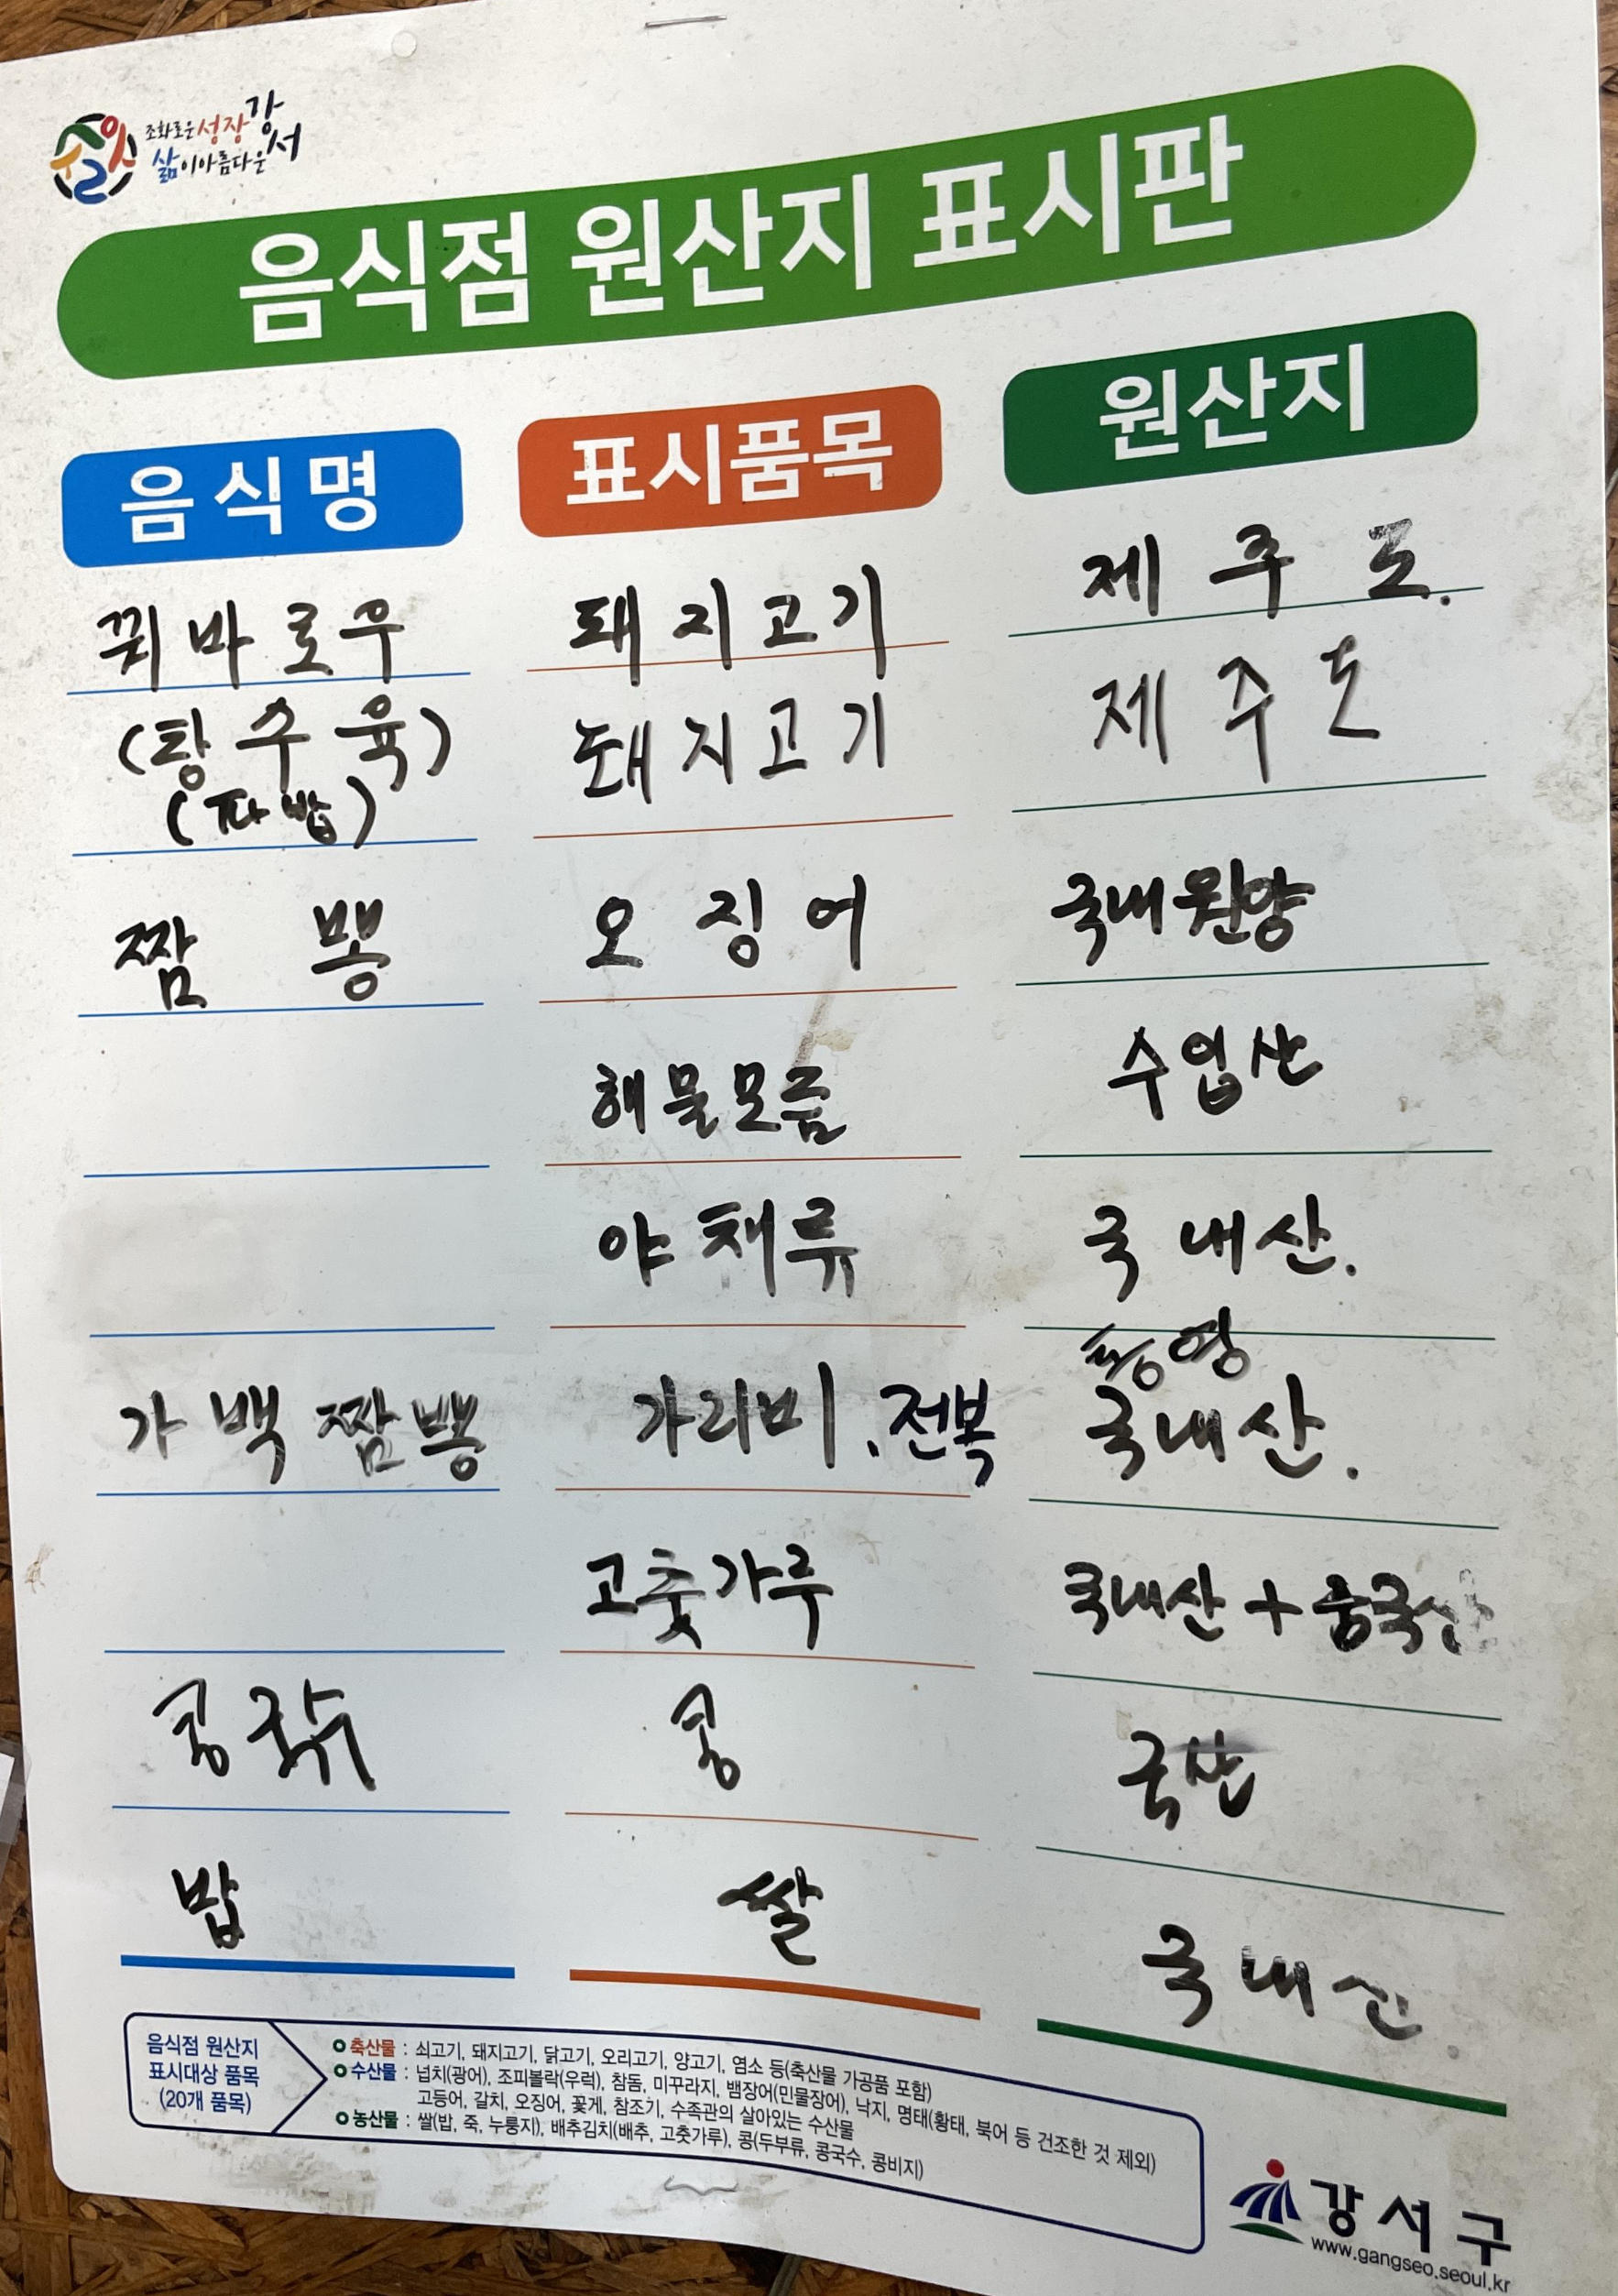 조화로운 성장 강서
삶이 아름다운
음식점 원산지 표시판
음식명 표시품목 원산지
꿔바로우 돼지고기 제주도.
(탕수육) 돼지고기 제주도
(짜밥)
짬뽕 오징어 국내원양
해물모듬 수입산
야채류 국내산.
통영
가백짬뽕 가리비.전복 국내산.
고춧가루 국내산+중국산
콩국수 콩 국산
밥 쌀 국내산
음식점 원산지
표시대상 품목
(20개 품목)
축산물 : 쇠고기, 돼지고기, 닭고기, 오리고기, 양고기, 염소 등(축산물 가공품 포함)
수산물 : 넙치(광어), 조피볼락(우럭), 참돔, 미꾸라지, 뱀장어(민물장어), 낙지, 명태(황태, 북어 등 건조한 것 제외)
고등어, 갈치, 오징어, 꽃게, 참조기, 수족관의 살아있는 수산물
농산물 : 쌀(밥, 죽, 누룽지), 배추김치(배추, 고춧가루), 콩(두부류, 콩국수, 콩비지)
강서구
www.gangseo.seoul.kr